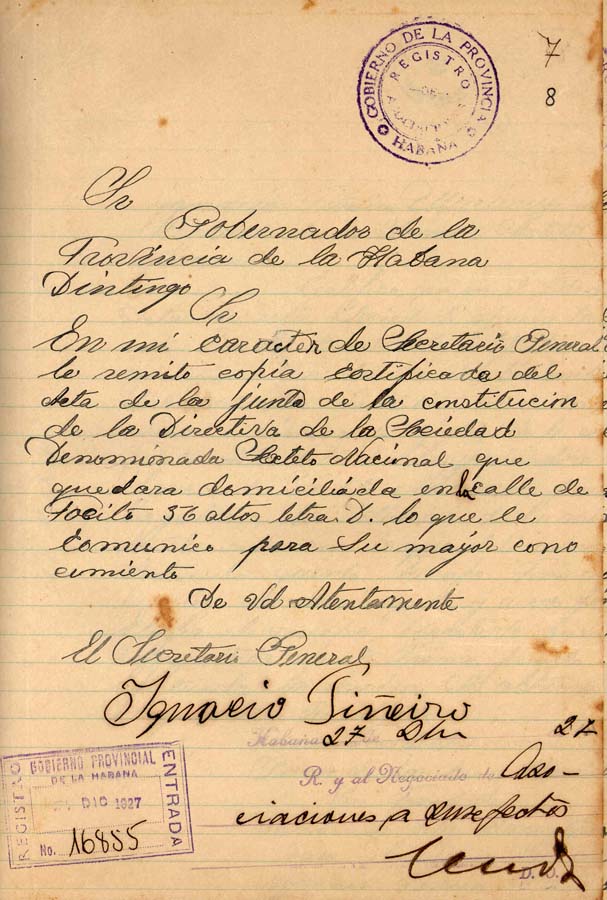 GOBIERNO DE LA PROVINCIA
REGISTRO
DE
HABANA
7
8
Sr
Gobernador de la
Provincia de la Habana
Dintingo
Sr
En mi caracter de Secretario General
le remito copia certificada del
Acta de la junta de la constitucion
de la Directiva de la Sociedad
Denominada Sexteto Nacional que
quedara domiciliada en la calle de
Pocito 36 altos letra D. lo que le
comunico para su mayor cono
cimiento
De Vd Atentamente
El Secretario General
Ignacio Piñeiro
Habana 27 27
R. y al Negociado de Aso-
ciaciones a sus efectos
REGISTRO
GOBIERNO PROVINCIAL
DE LA HABANA
DIC 1927
No. 16855
ENTRADA